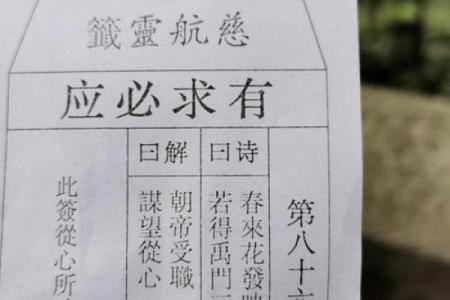 慈航靈籤
有求必应
第八十
诗曰
春來花發
若得禹門
解曰
朝帝受職
謀望從心
此簽從心所